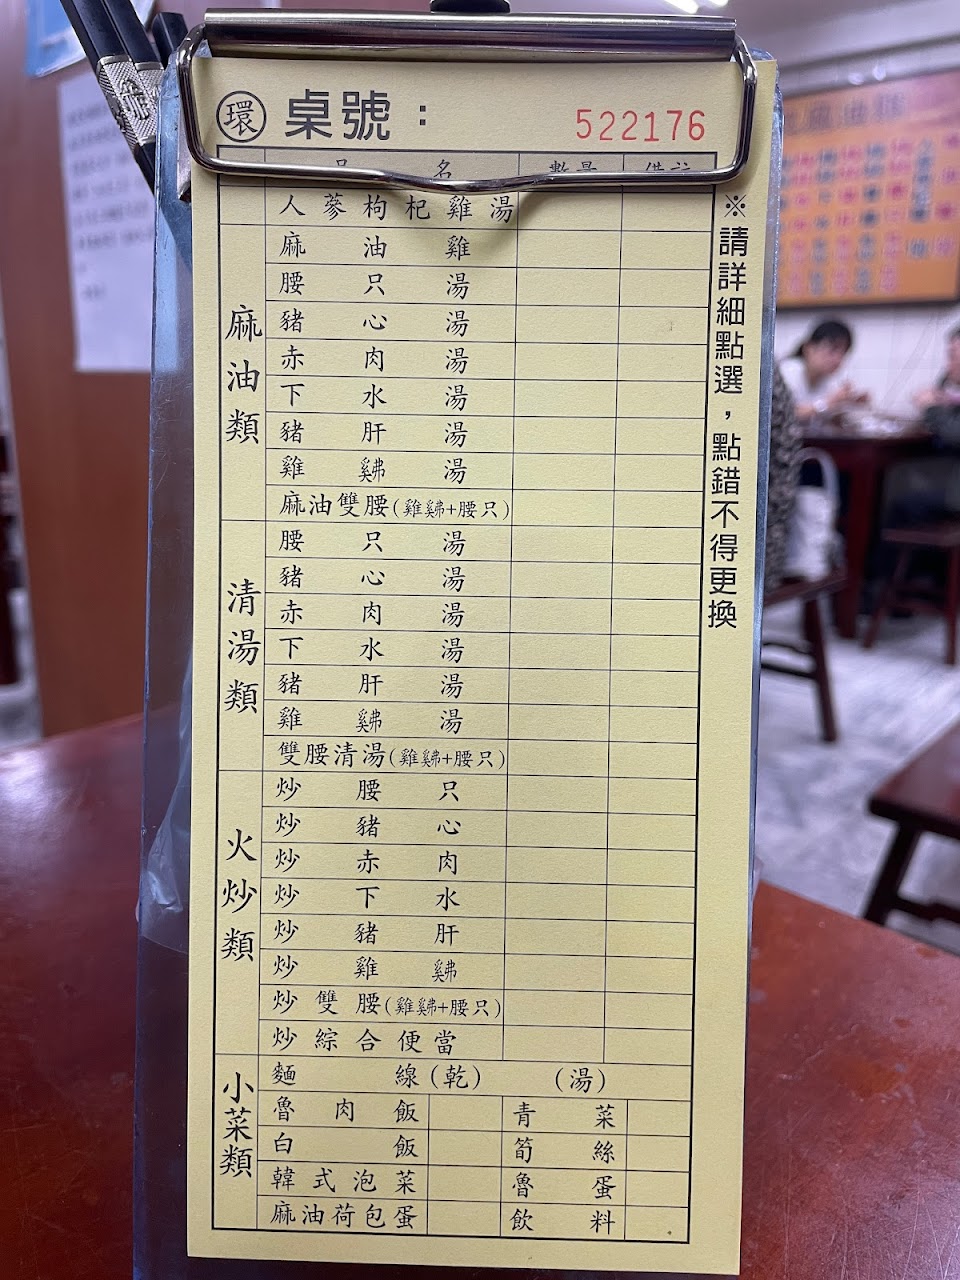 環 桌號：
522176
品名 數量 備註
人蔘枸杞雞湯
麻油類
麻油雞
腰只湯
豬心湯
赤肉湯
下水湯
豬肝湯
雞鷄湯
麻油雙腰(雞鷄+腰只)
清湯類
腰只湯
豬心湯
赤肉湯
下水湯
豬肝湯
雙腰清湯
火炒類
炒腰只
炒豬心
炒赤肉
炒下水
炒豬肝
炒雙腰
炒綜合便當
小菜類
麵線(乾) (湯)
魯肉飯 青菜
白飯 筍絲
韓式泡菜 魯蛋
麻油荷包蛋 飲料
※請詳細點選，點錯不得更換